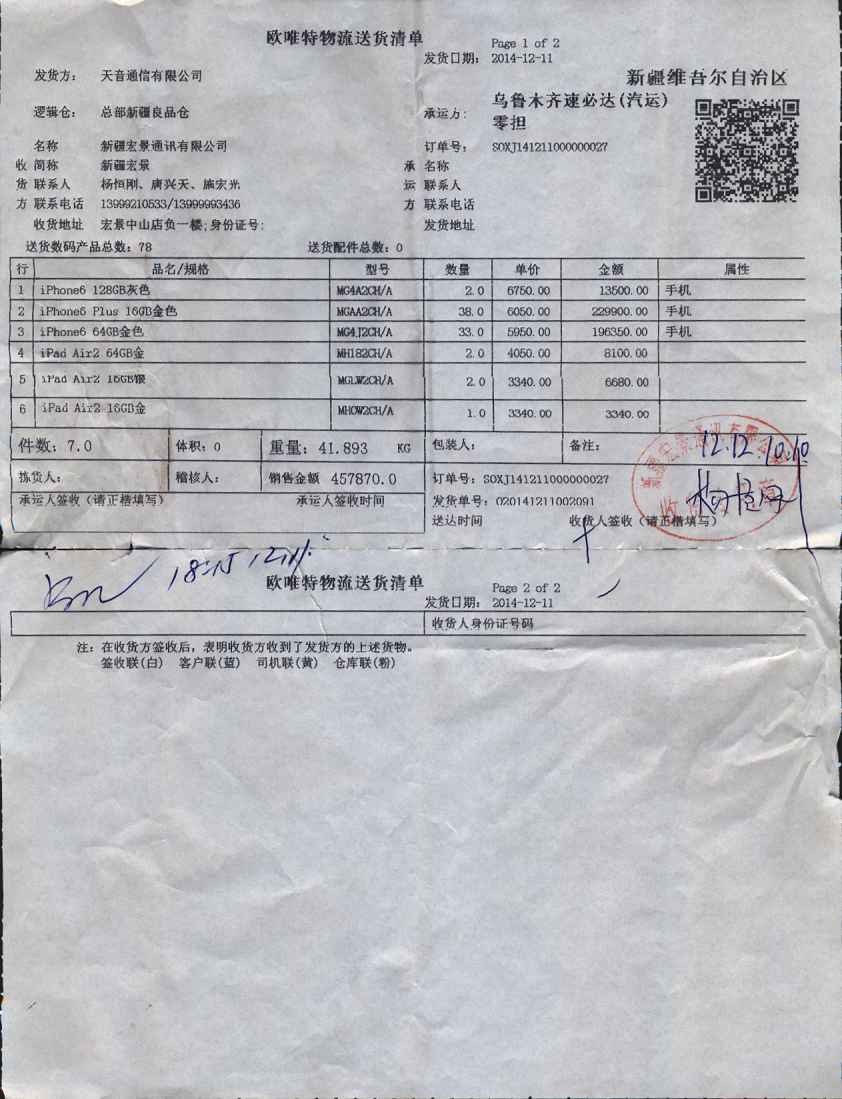 欧唯特物流送货清单
Page 1 of 2
发货日期: 2014-12-11
发货方: 天音通信有限公司
新疆维吾尔自治区
逻辑仓: 总部新疆良品仓
承运方: 乌鲁木齐速必达(汽运)
零担
名称 新疆宏景通讯有限公司
订单号: SOXJ141211000000027
收 简称 新疆宏景
承 名称
货 联系人 杨恒刚、唐兴天、施宏光
运 联系人
方 联系电话 13999210533/13999993436
方 联系电话
收货地址 宏景中山店负一楼;身份证号:
发货地址
送货数码产品总数: 78 送货配件总数: 0
行 品名/规格 型号 数量 单价 金额 属性
1 iPhone6 128GB灰色 MG4A2CH/A 2.0 6750.00 13500.00 手机
2 iPhone6 Plus 16GB金色 MGAA2CH/A 38.0 6050.00 229900.00 手机
3 iPhone6 64GB金色 MG4J2CH/A 33.0 5950.00 196350.00 手机
4 iPad Air2 64GB金 MH182CH/A 2.0 4050.00 8100.00
5 iPad Air2 16GB银 MGLW2CH/A 2.0 3340.00 6680.00
6 iPad Air2 16GB金 MH0W2CH/A 1.0 3340.00 3340.00
件数: 7.0 体积: 0 重量: 41.893 KG 包装人: 备注:
12.12.10:10
拣货人: 稽核人: 销售金额 457870.0 订单号: SOXJ141211000000027
发货单号: 020141211002091
承运人签收(请正楷填写) 承运人签收时间
送达时间 收货人签收(请正楷填写)
欧唯特物流送货清单
Page 2 of 2
发货日期: 2014-12-11
收货人身份证号码
注: 在收货方签收后, 表明收货方收到了发货方的上述货物。
签收联(白) 客户联(蓝) 司机联(黄) 仓库联(粉)